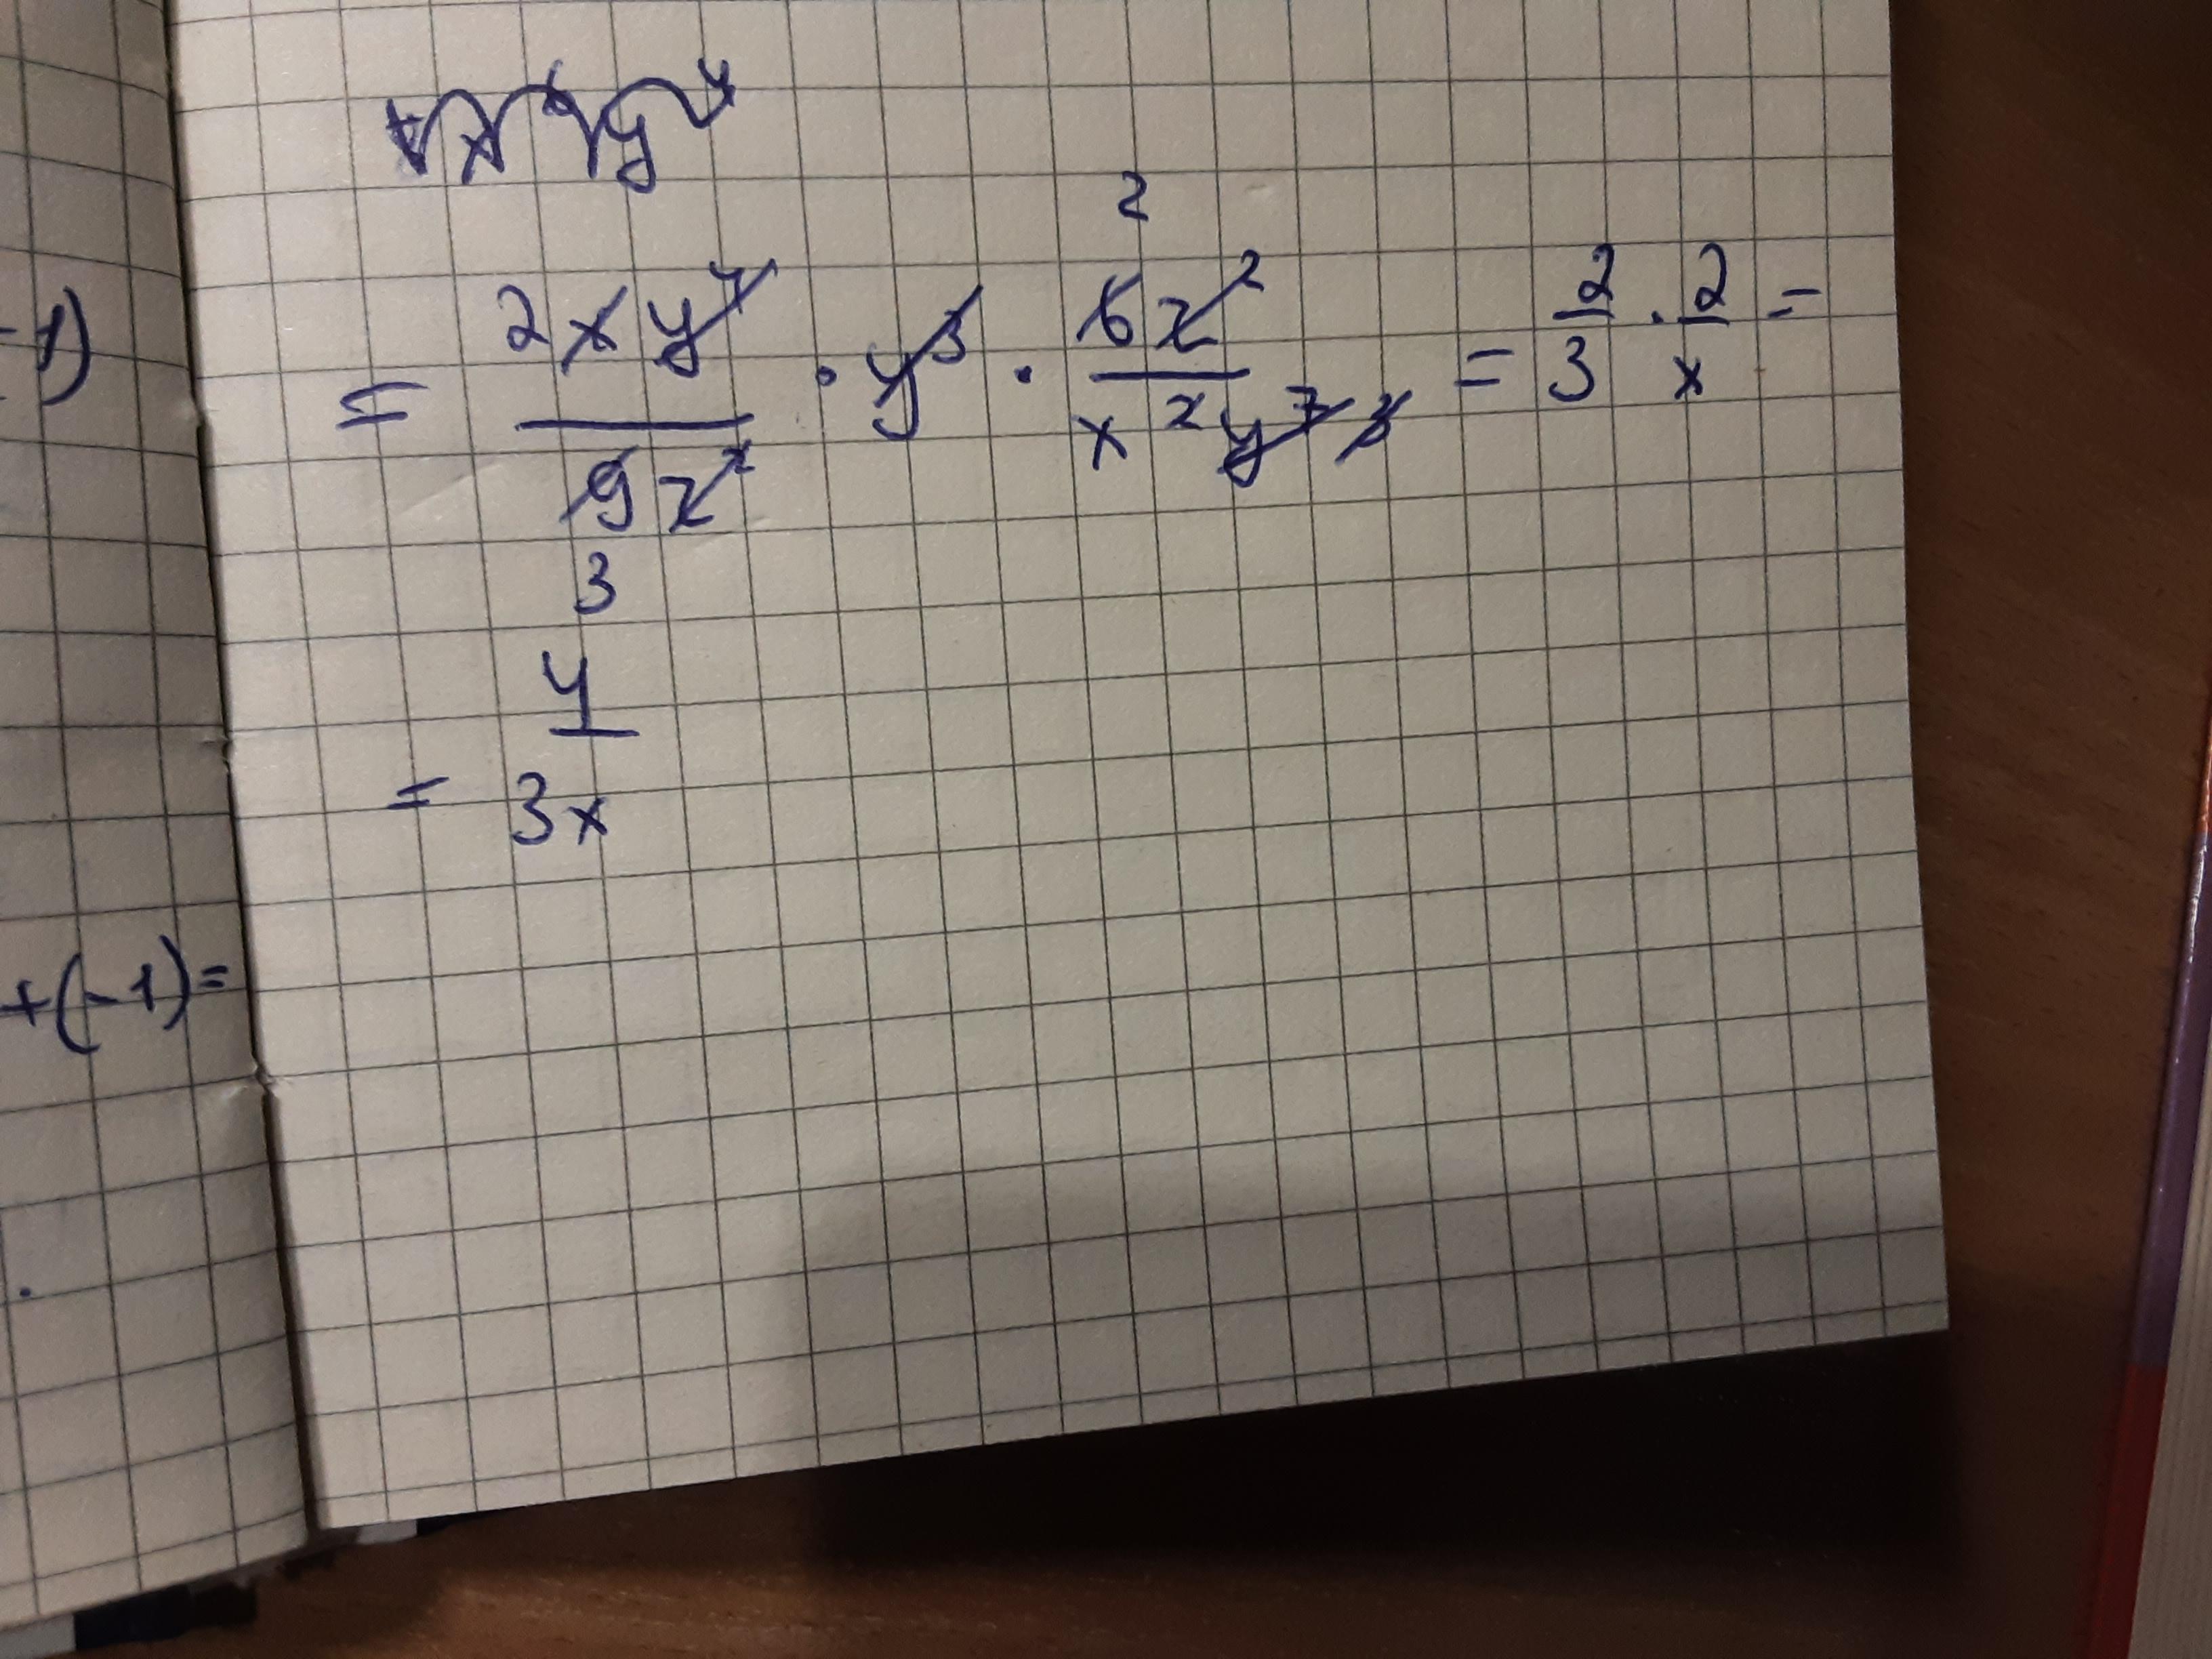 -1)
2
= 2xy⁴/9z² · y³ · 6z²/x²y⁷ = 2/3 · 2/x =
3
= 4/3x
+(-1)=